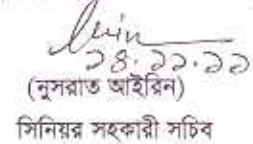 ১৪.১১.১১
(নুসরাত আইরিন)
সিনিয়র সহকারী সচিব